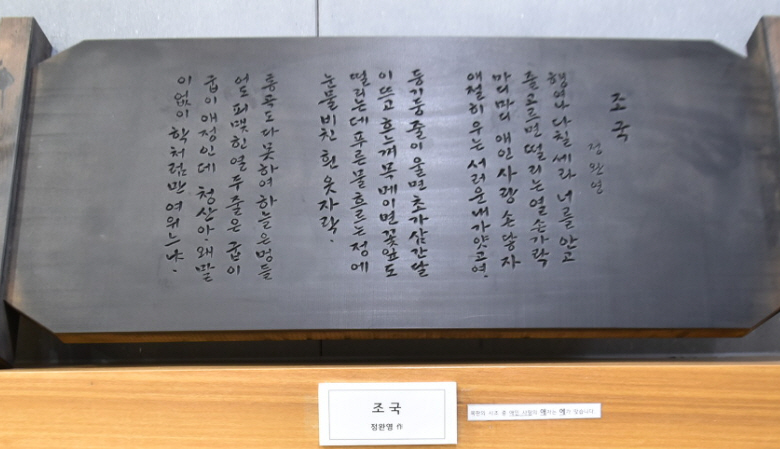 조국
정완영
행여나 다칠세라 너를 안고
줄 고르면 떨리는 열 손가락
마디마디 애인 사랑 손닿자
애절히 우는 서러운 내 가얏고여.
둥기둥 줄이 울면 초가삼간 달
이 뜨고 흐느껴 목메이면 꽃잎도
떨리는데 푸른 물 흐르는 정에
눈물 비친 흰 옷자락.
통곡도 다 못하여 하늘은 멍들
어도 피맺힌 열두 줄은 굽이
굽이 애정인데 청산아, 왜 말
이 없이 학처럼만 여위느냐.
조국
정완영 作
시조 중 애인 사랑의 맞습니다.